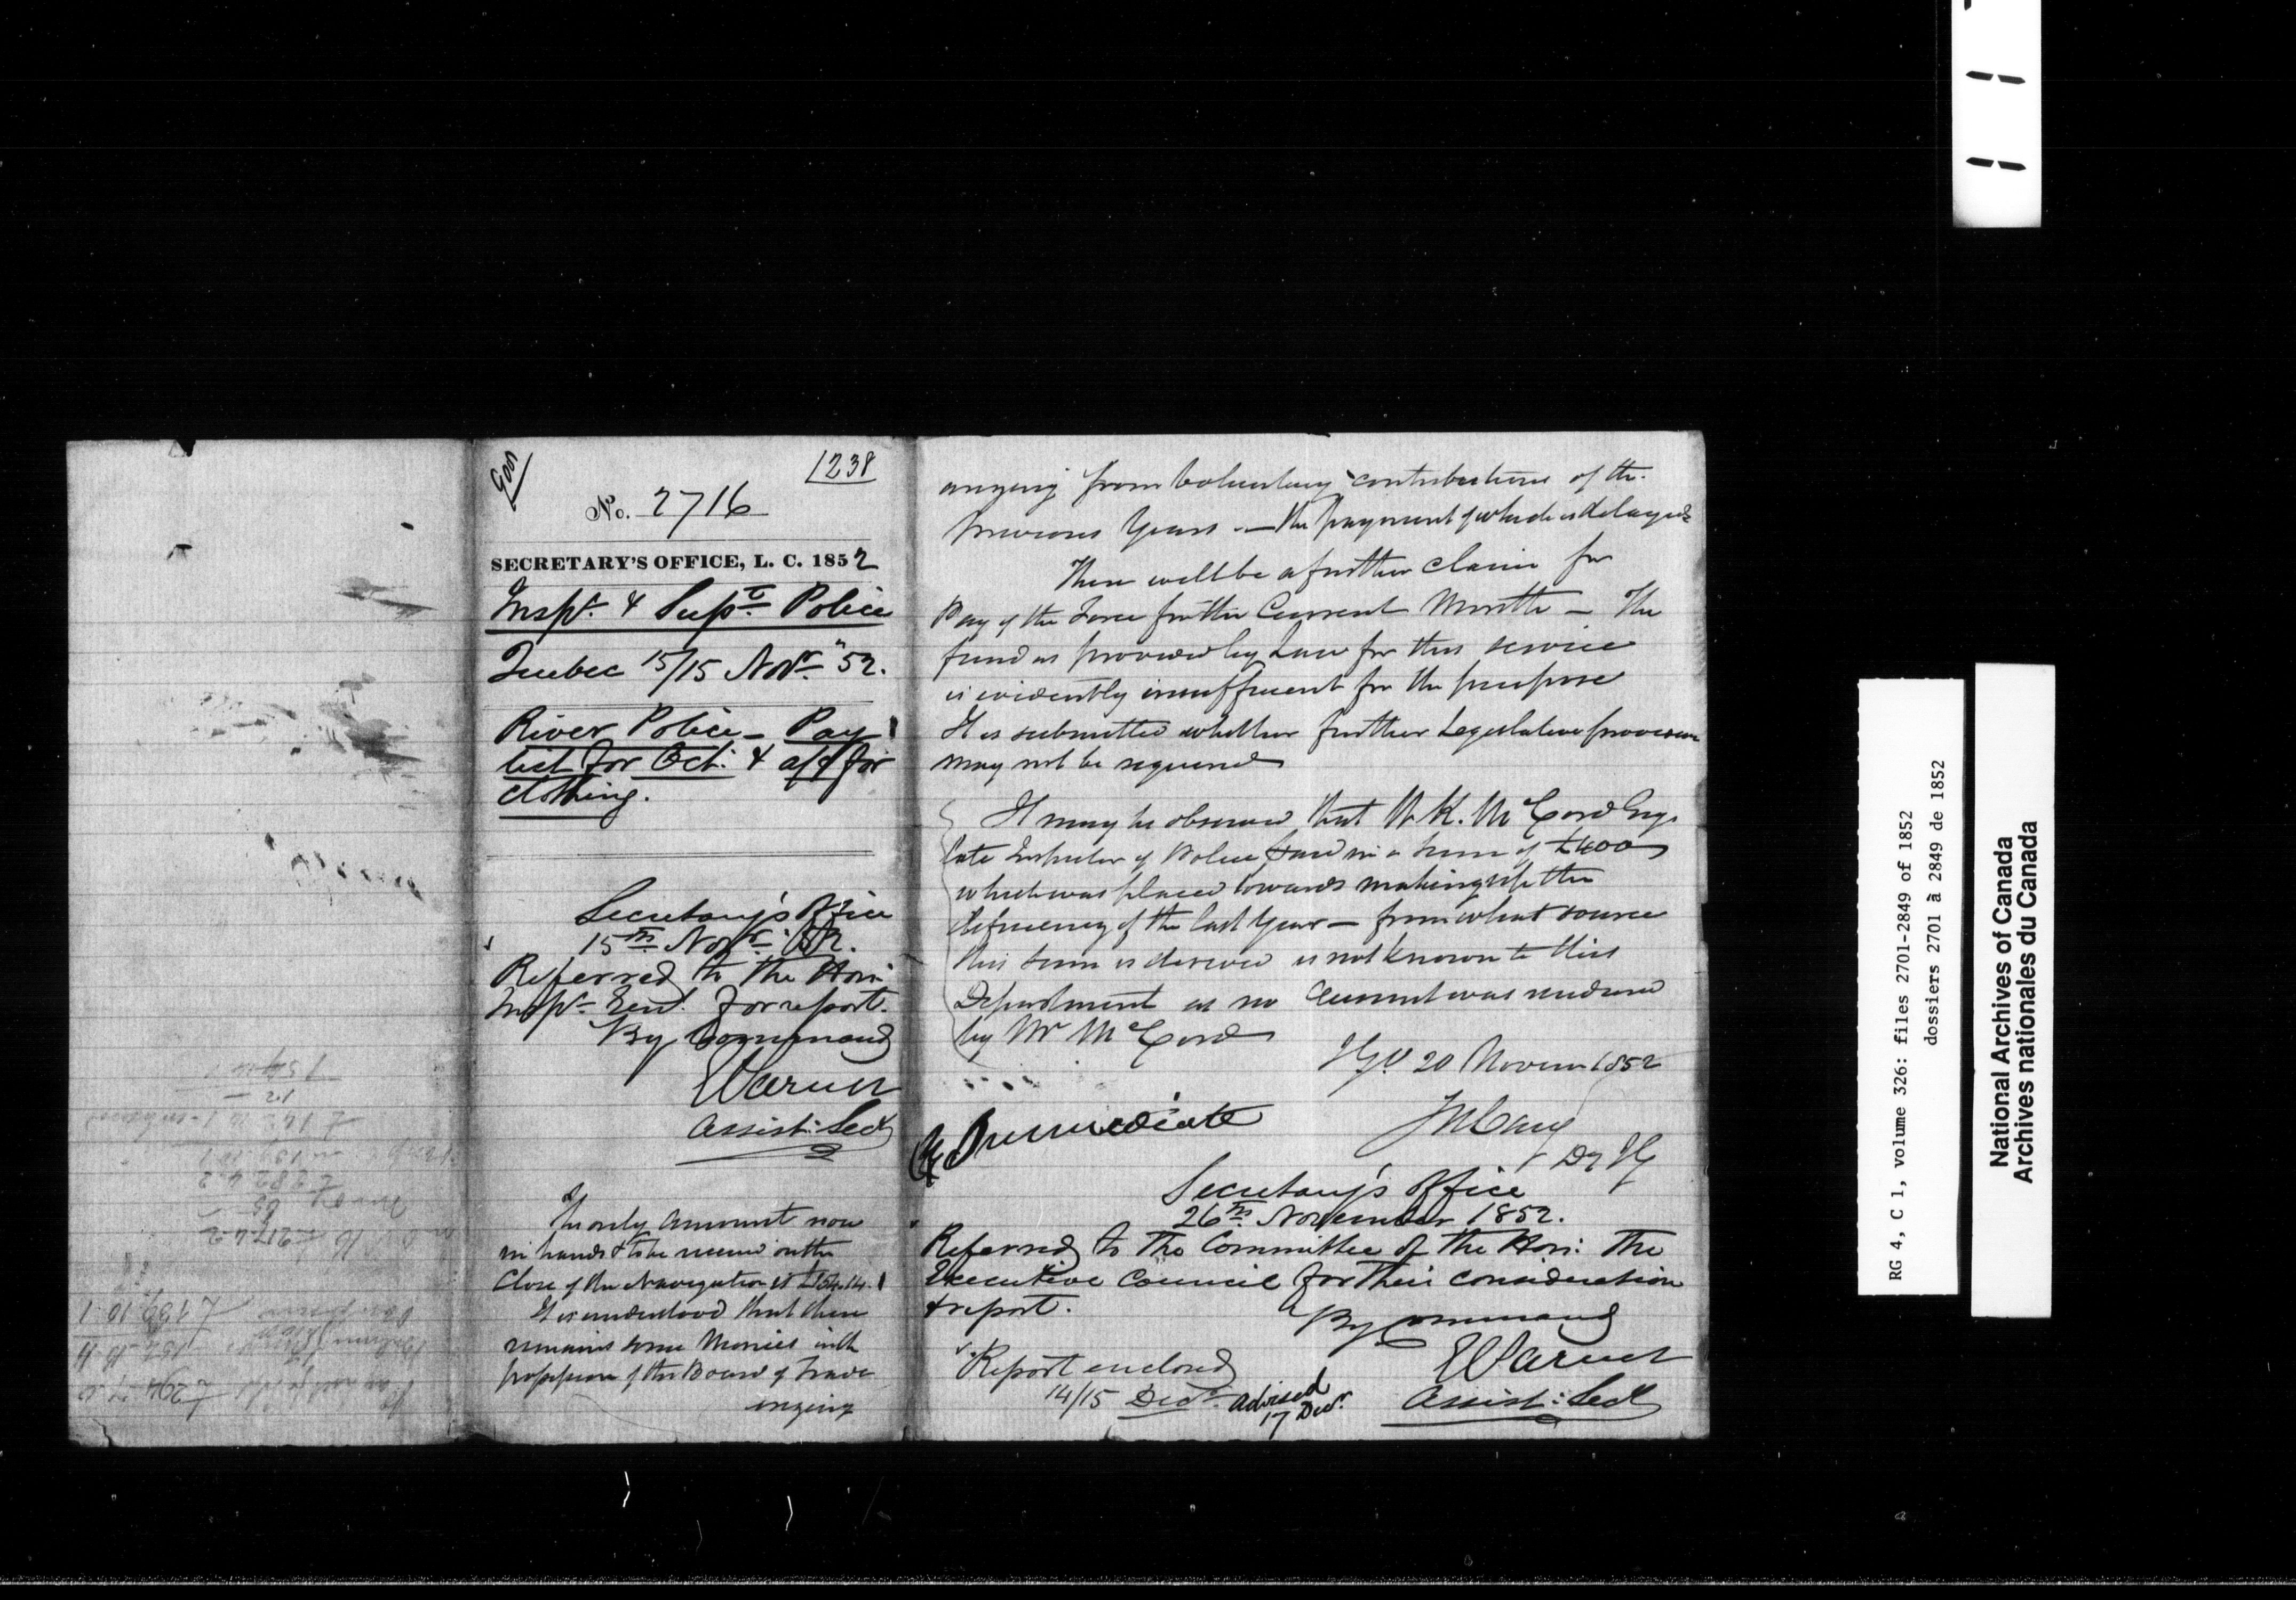 1238
No. 2716
SECRETARY'S OFFICE, L. C. 1852
Inspr. & Supt. Police
Quebec 15/15 Novr. "52.
River Police - Pay
list for Oct. & a/c for
clothing.
Secretary's Office
15th Novr. 52.
Referred to the Hon:
Inspr. Genl. for report.
By Command
E Parent
Assist: Secy
The only amount now
in hands & to be received on the
Close of the Navigation is £154.14.1
It is understood that there
remains some Monies in the
possession of the Board of Trade
arizing
arizing from Voluntary contributions of the
previous Years - the payment of which is delayed
There will be a further claim for
Pay of the Force for the Current Month - The
fund as provided by Law for this service
is evidently insufficient for the purpose
It is submitted whether further Legislative provision
may not be required
It may be observed that W. K. McCord Esqr
late Inspector of Police paid in a sum of £400
which was placed towards making up the
deficiency of the last Year - from what source
this sum is derived is not known to this
Department as no Account was rendered
by Mr McCord
I.G.O. 20 Novem 1852
Jh Cary
Dy I G
Immediate
Secretary's Office
26th November 1852.
Referred to the Committee of the Hon: The
Executive Council for their consideration
& report.
By Command
E Parent
Assist: Secy
Report enclosed
14/15 Decr. advised
17 Decr.
£294
152
£139.10.1
£217.4.2
65
£282.4.2
£142
12
154.14.1
RG 4, C 1, volume 326: files 2701-2849 of 1852
dossiers 2701 à 2849 de 1852
National Archives of Canada
Archives nationales du Canada